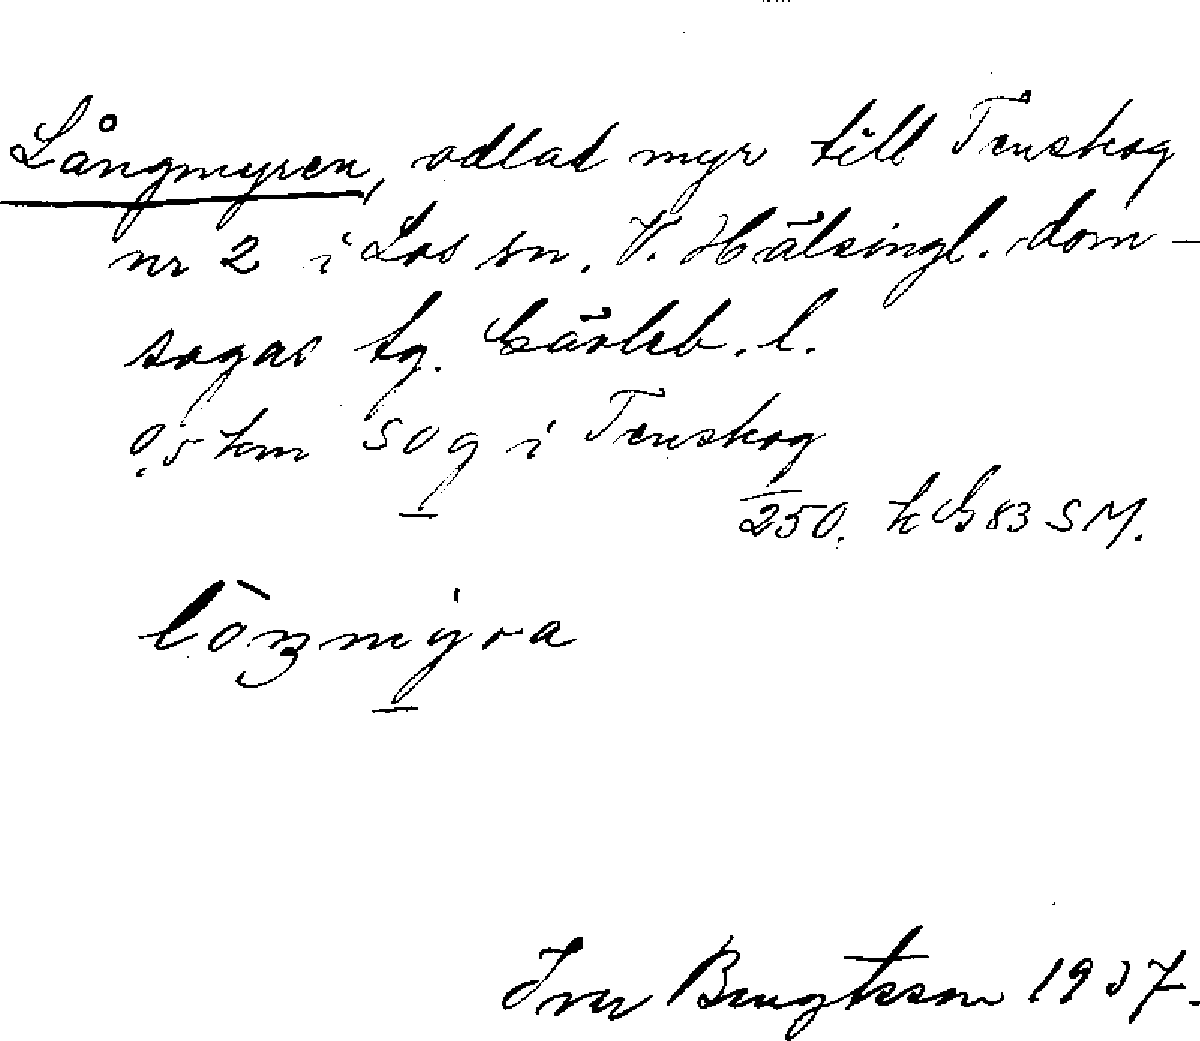 Långmyren, odlad myr till Tenskog
nr 2 i Los sn. V. Hälsingl. dom-
sagas tg. Gävleb. l.
0,5 km SO g i Tenskog
250. k G 83 SM.
lòŋmýra
Iver Bengtsson 1937.